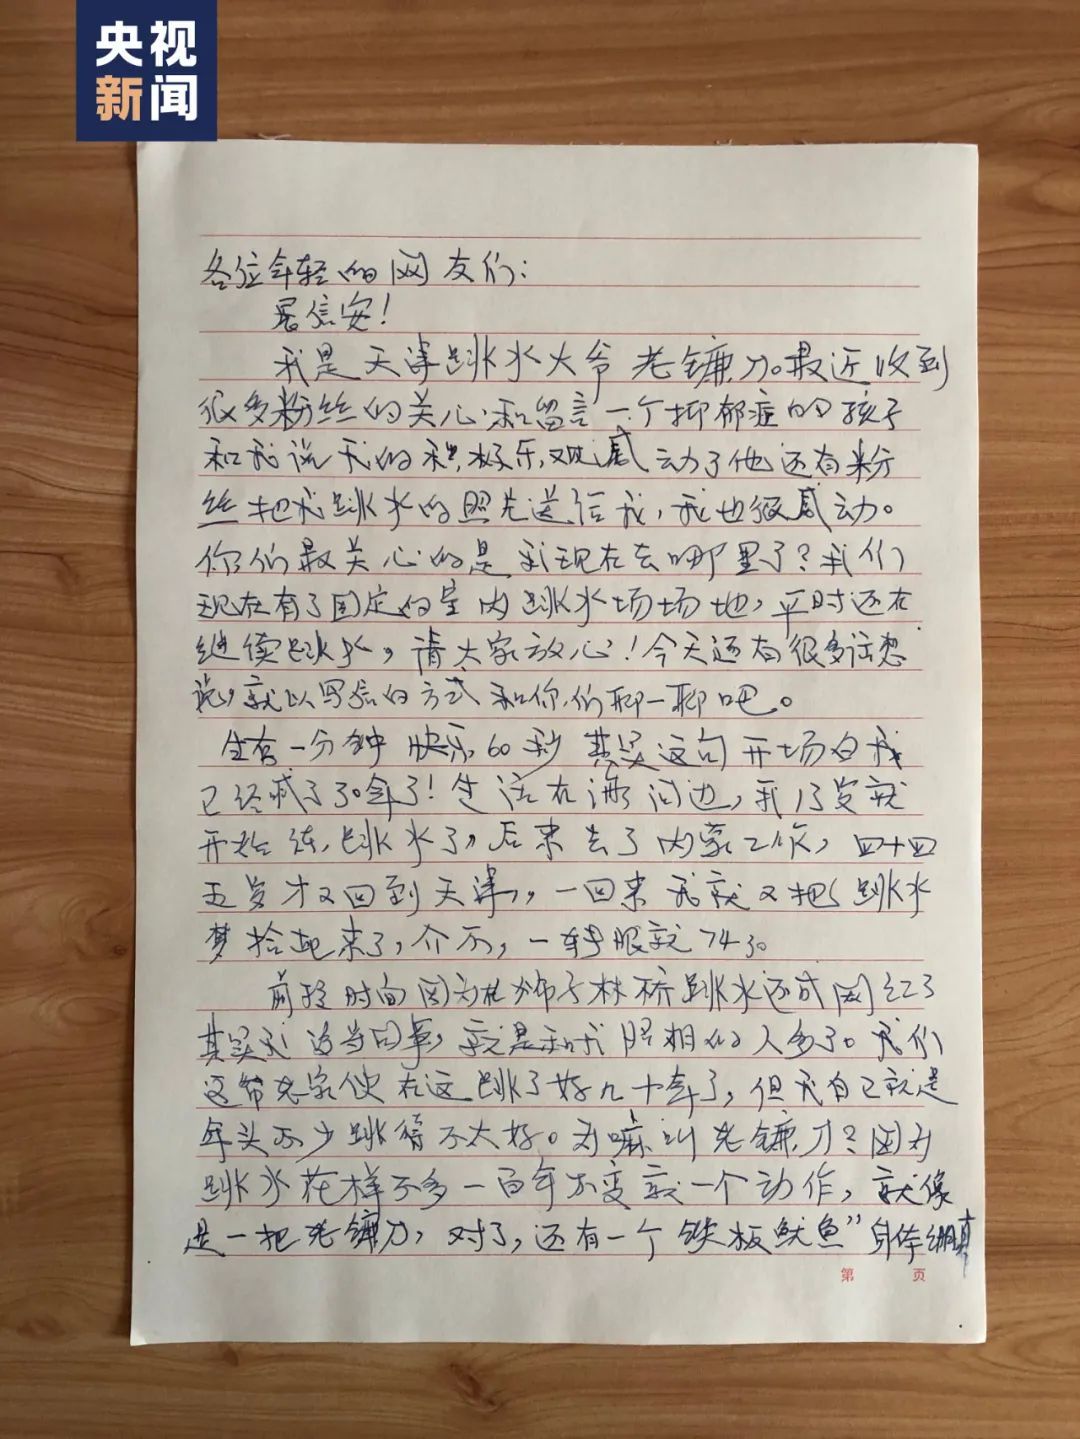 央视
新闻
各位年轻的网友们：
见信安！
我是天津跳水大爷老镰刀。最近收到
很多粉丝的关心和留言一个抑郁症的孩子
和我说我的积极乐观感动了他还有粉
丝把我跳水的照片送给我，我也很感动。
你们最关心的是我现在去哪里了？我们
现在有了固定的室内跳水场场地，平时还在
继续跳水，请大家放心！今天还有很多话想
说，就以写信的方式和你们聊一聊吧。
生命一分钟快乐60秒其实这句开场白我
已经喊了30年了！生活在海河边，我13岁就
开始练跳水了，后来去了内蒙工作，四十四
五岁才又回到天津，一回来我就又把跳水
梦拾起来了，介不，一转眼就74了。
前段时间因为在狮子林桥跳水还成网红了
其实我没当回事，就是和我照相的人多了。我们
这帮老家伙在这跳了好几十年了，但我自己就是
年头不少跳得不太好。为嘛叫老镰刀？因为
跳水花样不多一百年不变就一个动作，就像
是一把老镰刀，对了，还有一个铁板鱿鱼”身体绷直
第 页